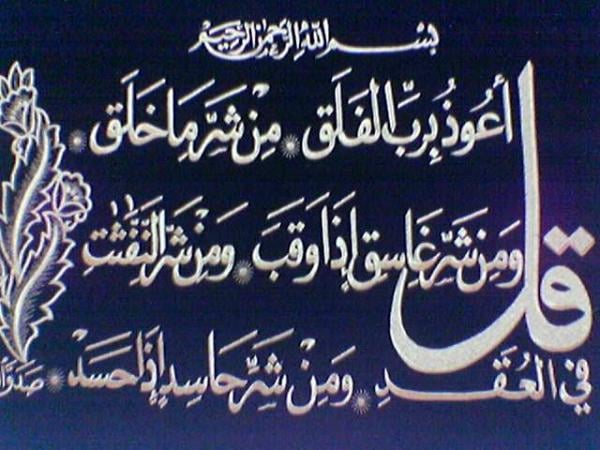 بسم الله الرحمن الرحيم
قل أعوذ برب الفلق من شر ما خلق
ومن شر غاسق إذا وقب ومن شر النفثت
في العقد ومن شر حاسد إذا حسد